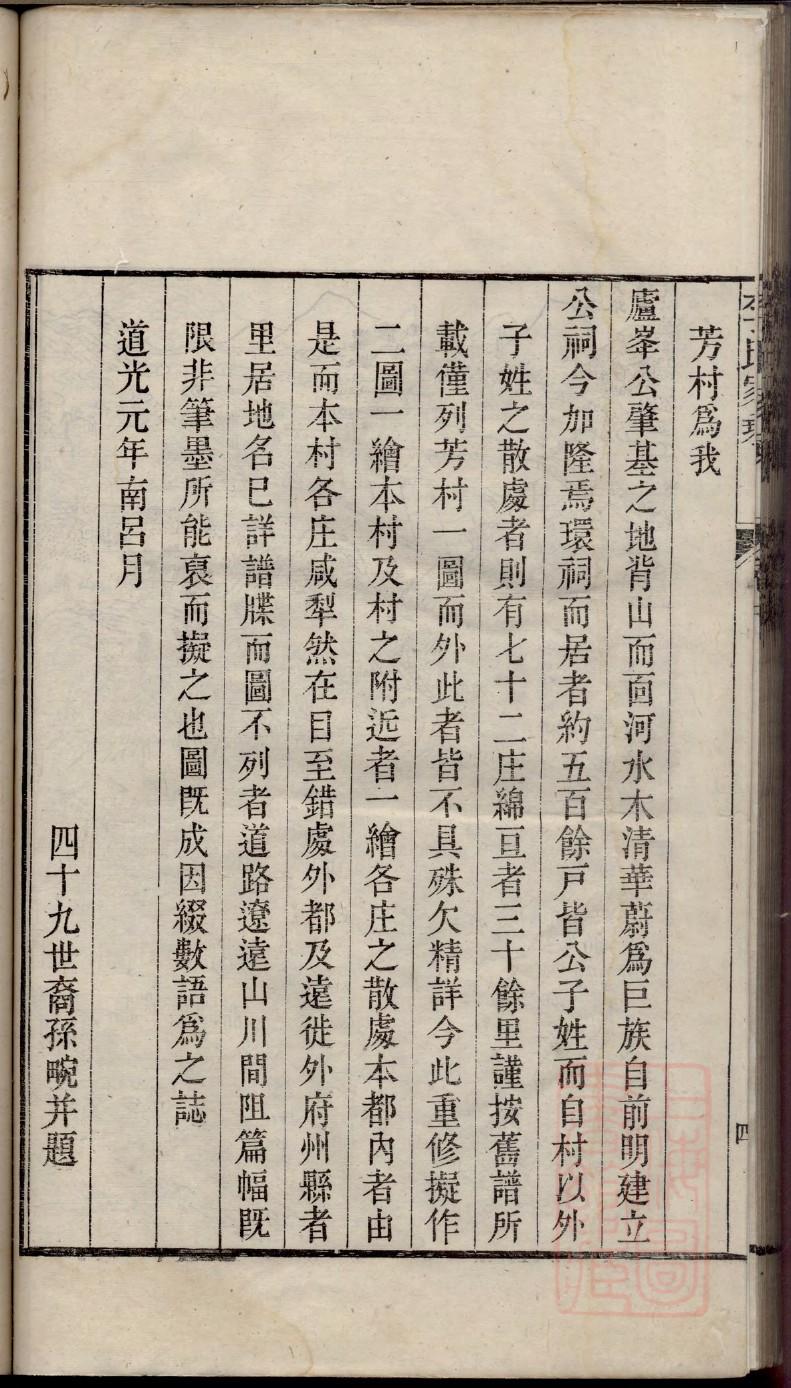 芳村爲我
廬峯公肇基之地背山而面河水木清華蔚爲巨族自前明建立
公祠今加隆焉環祠而居者約五百餘戸皆公子姓而自村以外
子姓之散處者則有七十二庄綿亘者三十餘里謹按舊譜所
載僅列芳村一圖而外此者皆不具殊欠精詳今此重修擬作
二圖一繪本村及村之附近者一繪各庄之散處本都內者由
是而本村各庄咸犁然在目至錯處外都及遠徙外府州縣者
里居地名巳詳譜牒而圖不列者道路遼遠山川間阻篇幅旣
限非筆墨所能裒而擬之也圖旣成因綴數語爲之誌
道光元年南呂月
四十九世裔孫畹并題
四